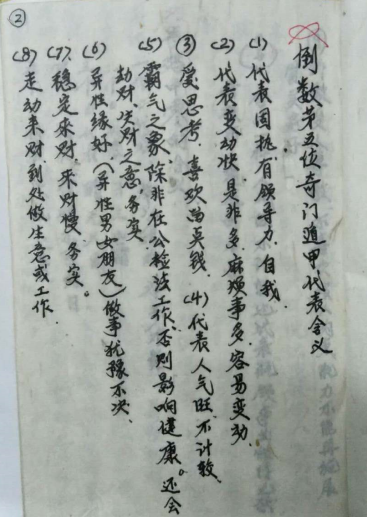 ②
倒数第五位奇门遁甲代表含义
(1) 代表固执,有领导力,自我.
(2) 代表变动快.是非多.麻烦事多,容易变动.
③ 爱思考.喜欢当真钱.(4)代表人气旺.不计较.
(5) 霸气之象,除非在公检法工作,否则影响健康。还会
劫财、破财之意,务实
(6) 异性缘好(异性男女朋友)做事犹豫不决.
(7) 稳定来财,来财慢,务实。
(8) 走动来财,到处做生意或工作.